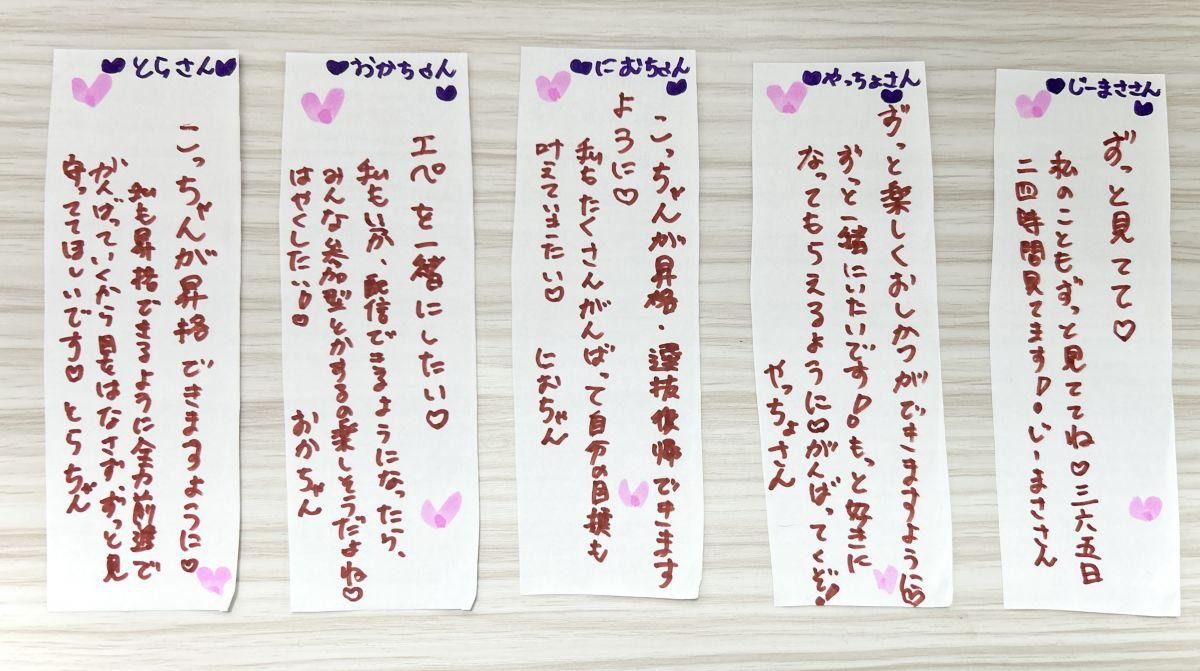 とらさん
こっちゃんが昇格できますように♡
私も昇格できるように全力前進で
がんばっていくから目をはなさず、ずっと見
守っててほしいです♡ とらちゃん
おかちゃん
エペを一緒にしたい♡
私もいつか、配信できるようになったら、
みんな参加型とかするの楽しそうだよね♡
はやくしたい!♡
おかちゃん
にむちゃん
こっちゃんが昇格・選抜復帰できます
ように♡
私もたくさんがんばって自分の目標も
叶えていきたい♡ にむちゃん
やっちょさん
ずっと楽しくおしかつができますように♡
ずっと一緒にいたいです!!もっと好きに
なってもらえるように♡がんばってくぞ!
やっちょさん
じーまささん
ずっと見てて♡
私のこともずっと見ててね♡三六五日
二四時間見てます!!じーまささん